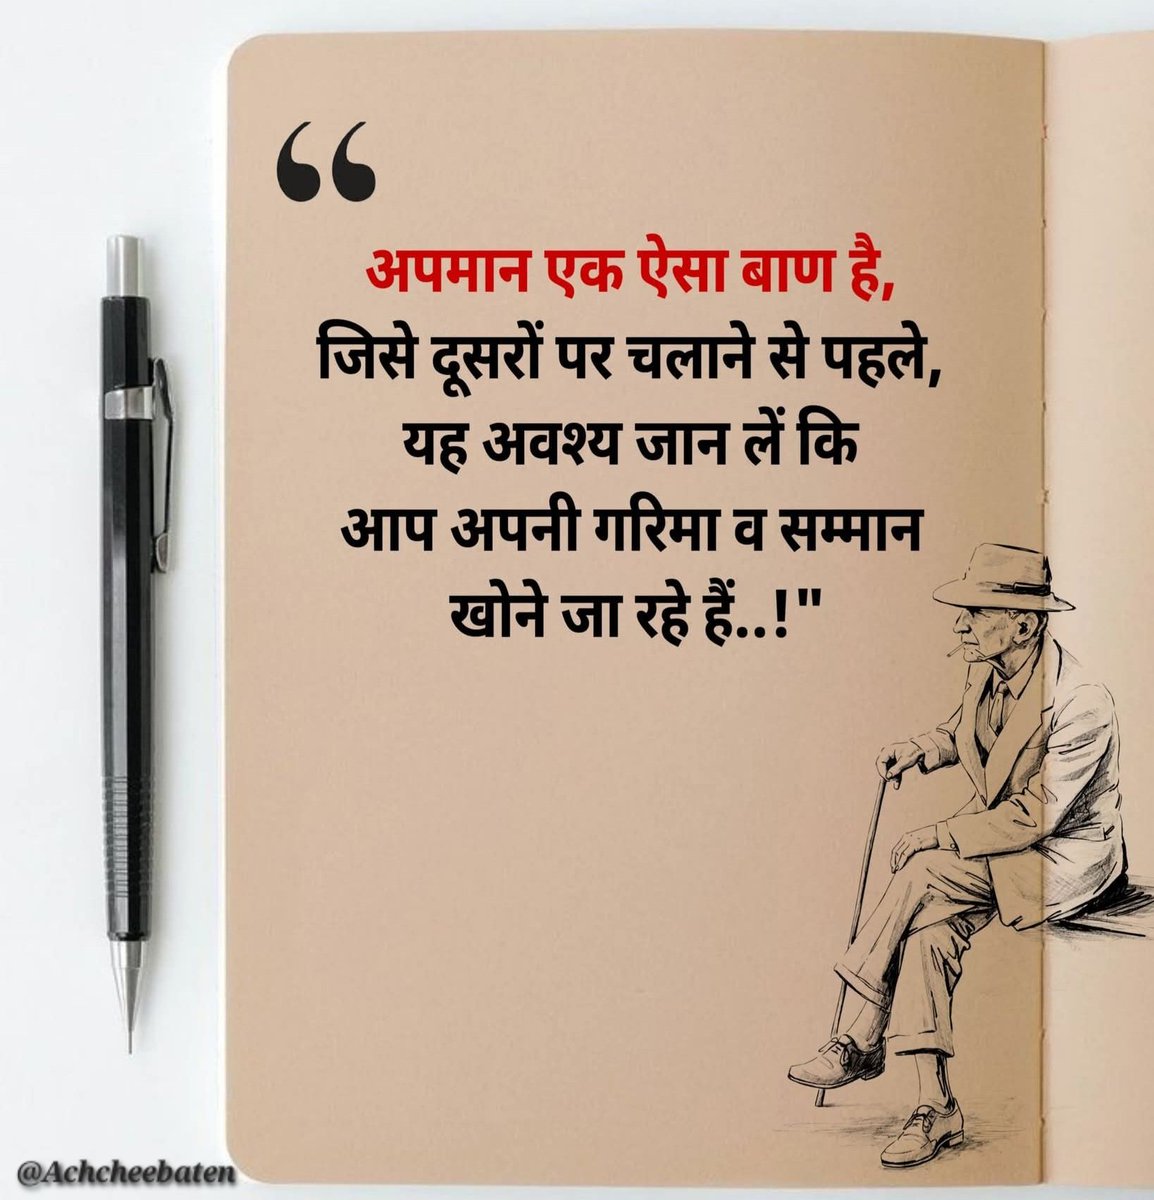 “
अपमान एक ऐसा बाण है,
जिसे दूसरों पर चलाने से पहले,
यह अवश्य जान लें कि
आप अपनी गरिमा व सम्मान
खोने जा रहे हैं..!"
@Achcheebaten